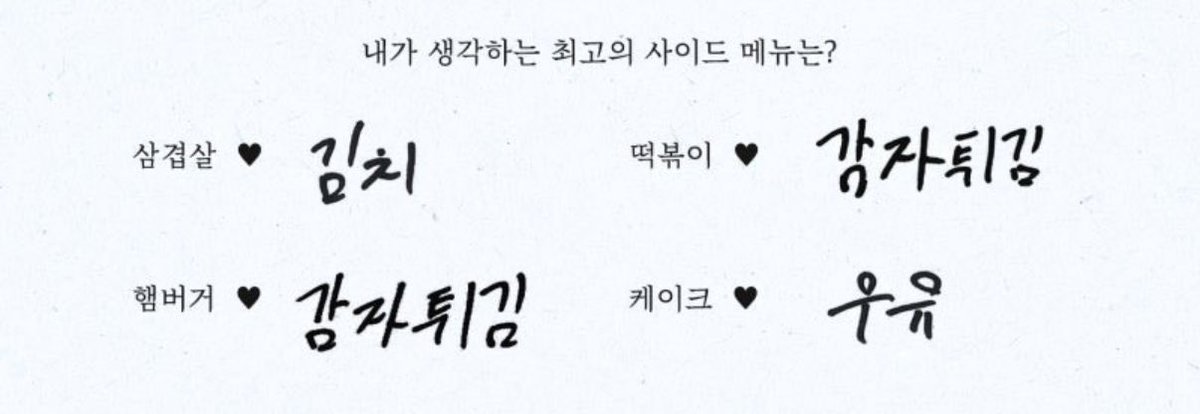 내가 생각하는 최고의 사이드 메뉴는?
삼겹살 ♥ 김치
떡볶이 ♥ 감자튀김
햄버거 ♥ 감자튀김
케이크 ♥ 우유